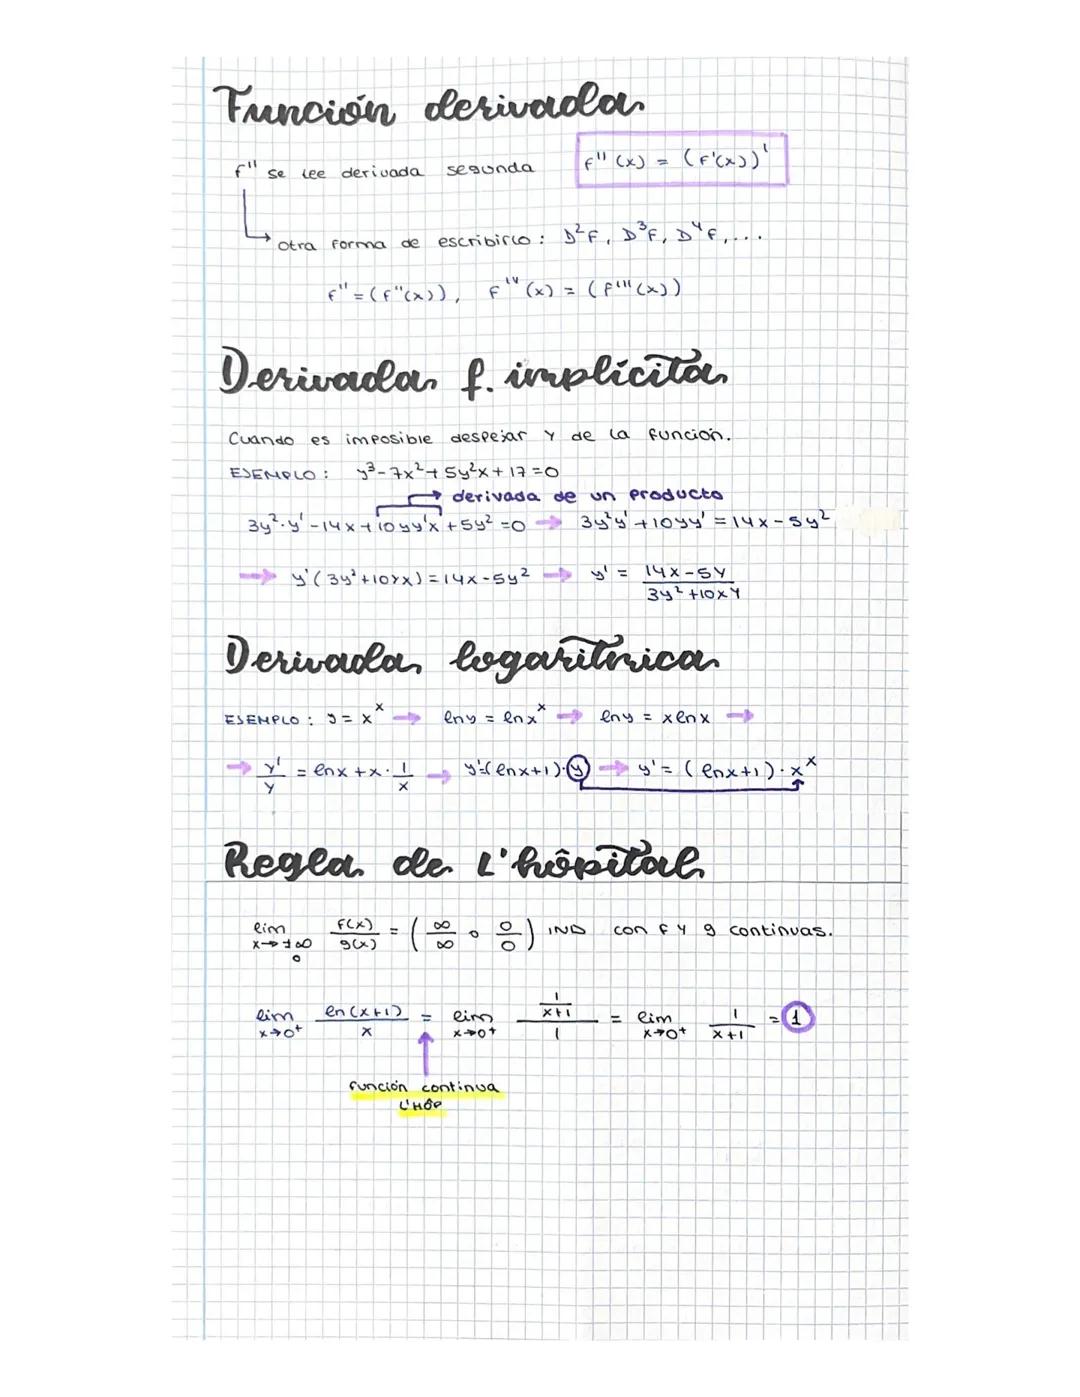 Función derivada
f'' se lee derivada segunda f''(x) = (f'(x))'
otra forma de escribirlo: D²f, D³f, D⁴f,...
f'' = (f''(x)), f^IV (x) = (f'''(x))
Derivada f. implícita
Cuando es imposible despejar y de la función.
EJEMPLO: y³-7x²+5y²x+17=0
derivada de un producto
3y²·y'-14x+10yy'x+5y²=0 → 3y²y'+10yy'=14x-5y²
→ y'(3y²+10yx)=14x-5y² → y' = (14x-5y)/(3y²+10xy)
Derivada logarítmica
EJEMPLO: y = x^x → lny = lnx^x → lny = xlnx →
→ y'/y = lnx+x·1/x → y'=(lnx+1)·y → y' = (lnx+1)·x^x
Regla de L'hôpital
lim x→±∞ 0 f(x)/g(x) = (∞/∞ o 0/0) IND con f y g continuas.
lim x→0⁺ ln(x+1)/x = lim x→0⁺ (1/(x+1))/1 = lim x→0⁺ 1/(x+1) = 1
función continua
L'HÔP